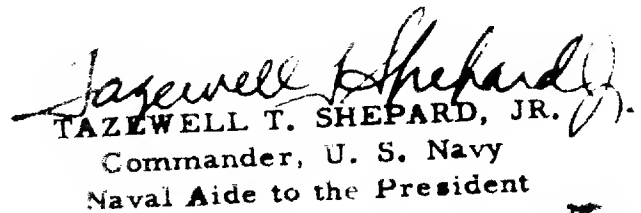 Tazewell T Shepard Jr.
TAZEWELL T. SHEPARD, JR.
Commander, U. S. Navy
Naval Aide to the President